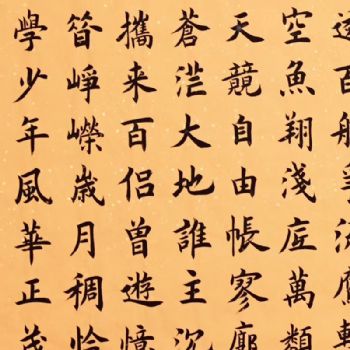 透百舸爭流鷹擊
空魚翔淺底萬類
天競自由帳寥廓
蒼茫大地誰主沉
攜来百侶曾遊憶
昔崢嶸歲月稠恰
學少年風華正茂